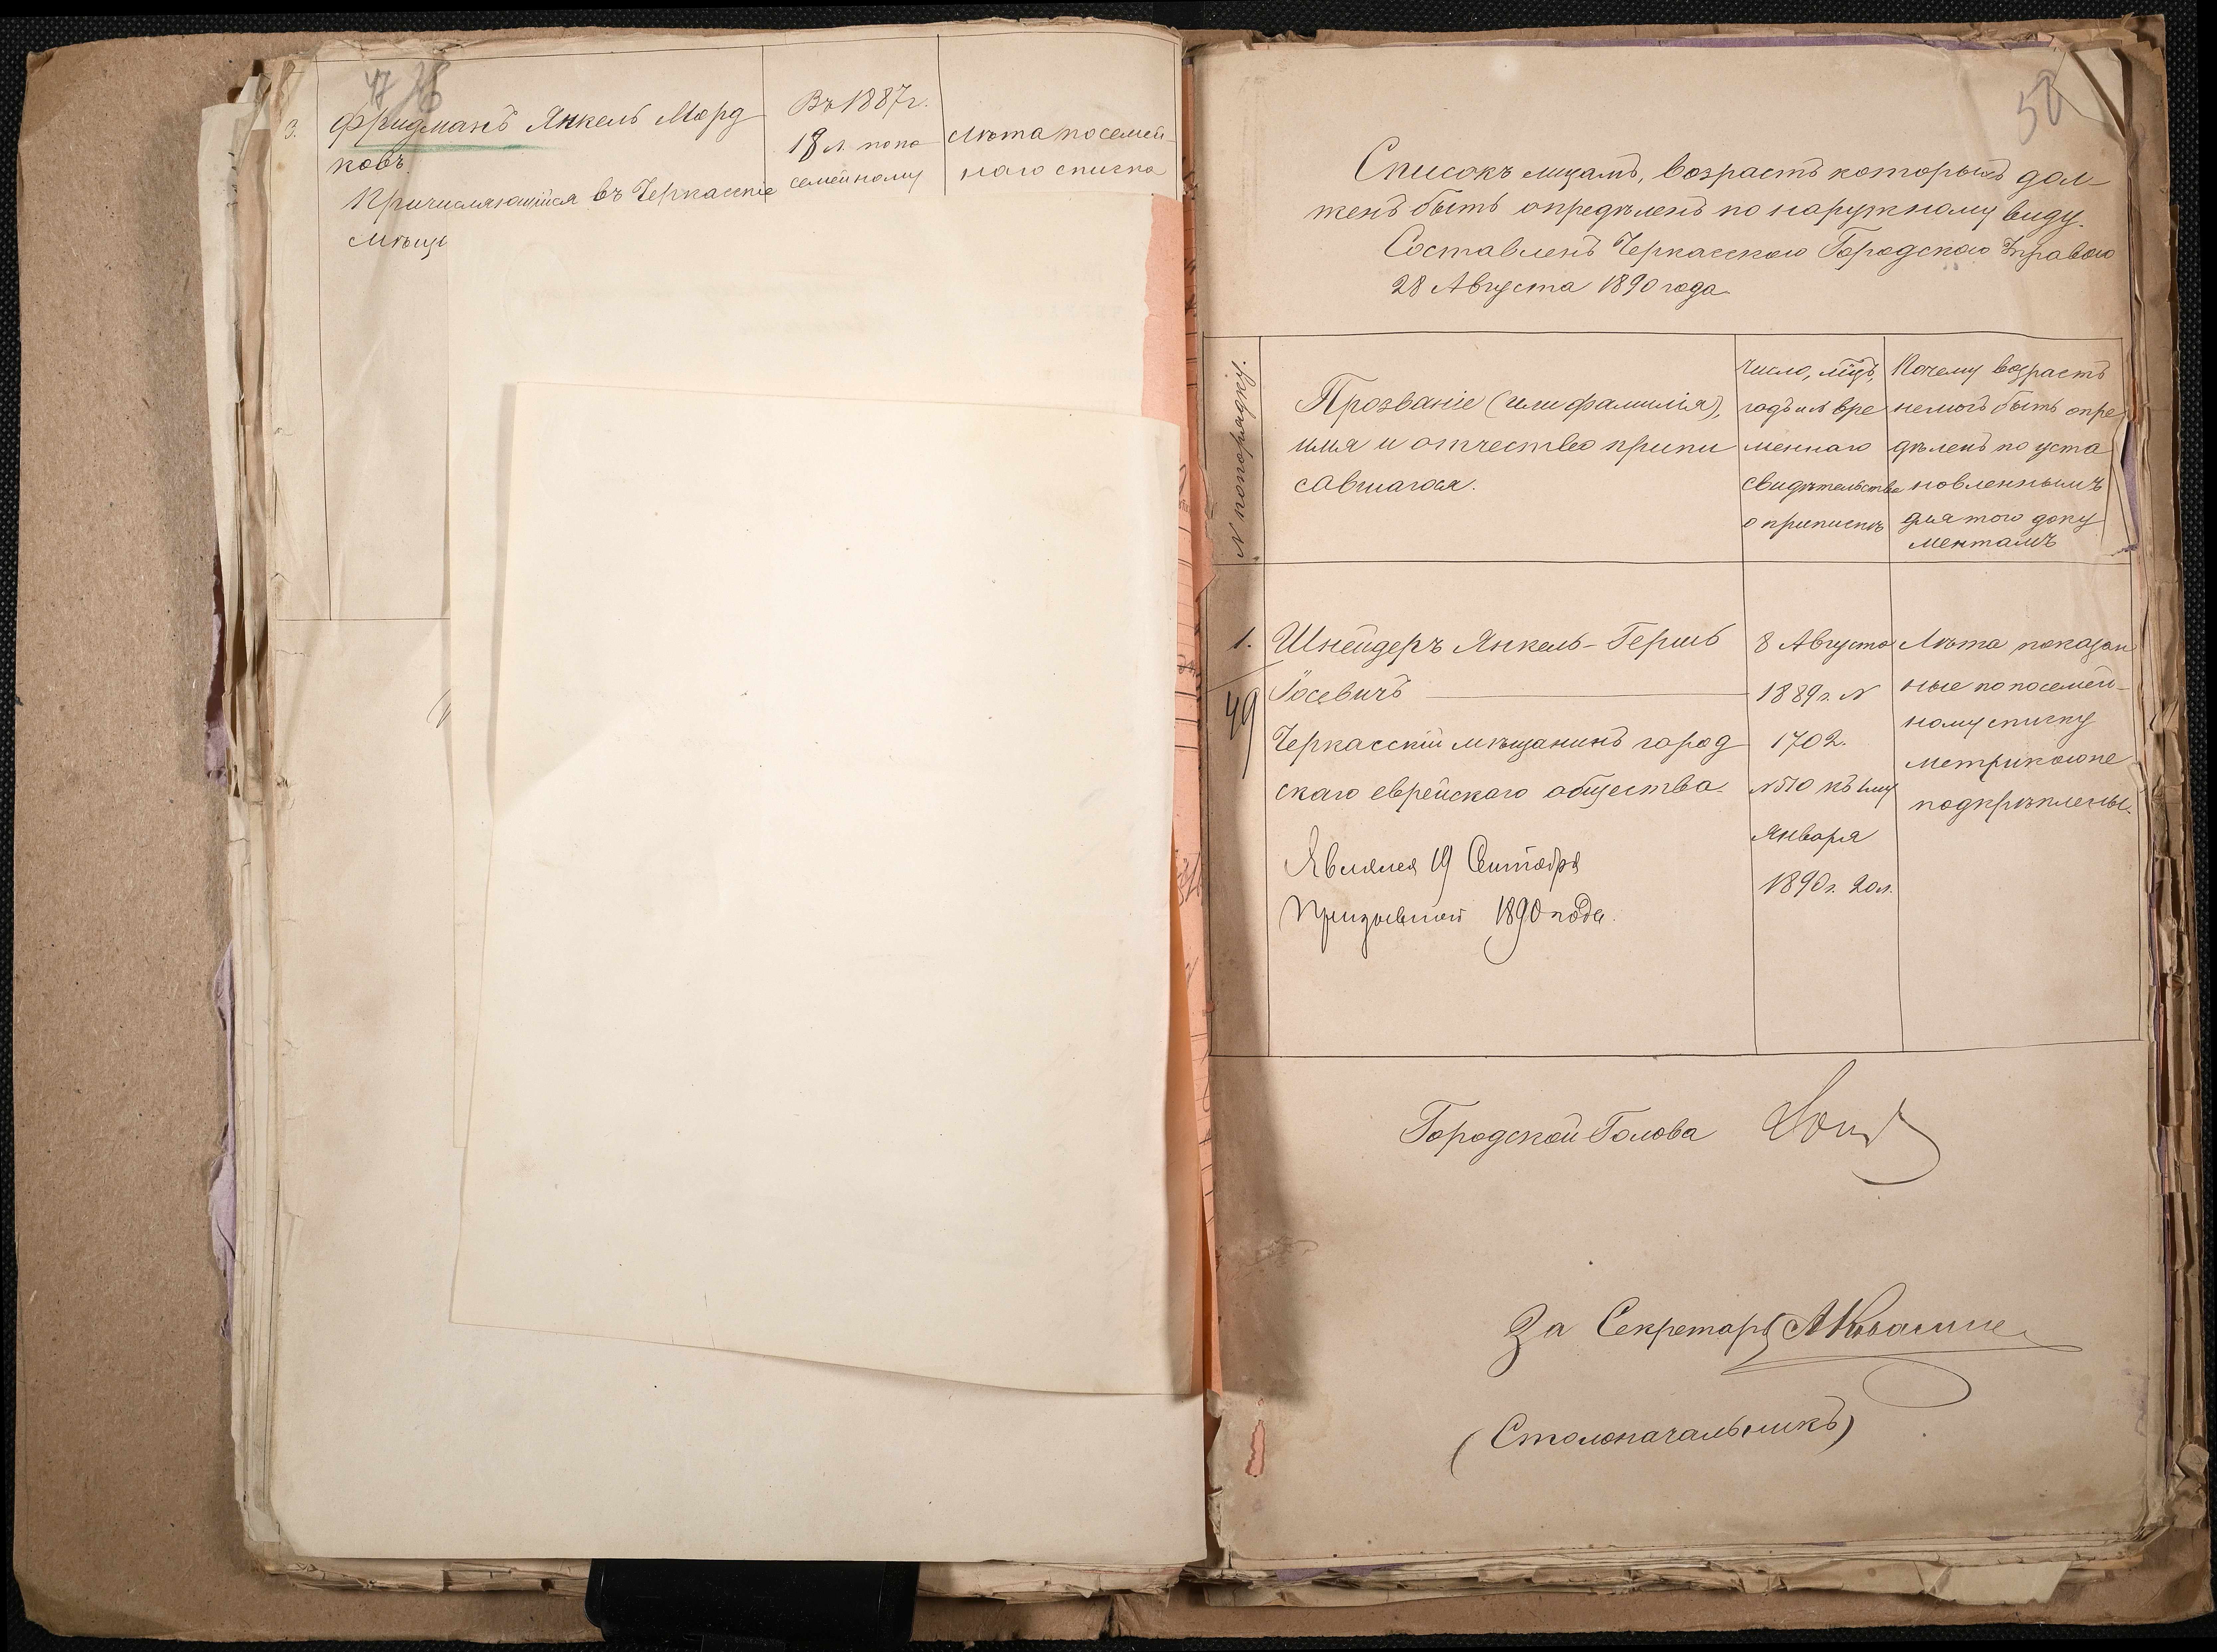 47
3. Фридманъ Янкель Морд
ковъ.
Причисляющійся въ Черкасскіе
мѣща
Въ 1887 г.
18 л. по по
семейному
Лѣта по семей-
наго списка
50
Списокъ лицамъ, возрастъ которыхъ дол-
женъ быть опредѣленъ по наружному виду.
Составленъ Черкасскою Городскою Управою
28 Августа 1890 года
№ по порядку.
Прозваніе (или фамилія),
имя и отчество припи
савшагося.
Число, мѣцъ,
годъ и № вре
меннаго
свидѣтельства
о припискѣ
Почему возрастъ
не могъ быть опре
дѣленъ по уста
новленнымъ
для того доку
ментамъ
1.
49
Шнейдеръ Янкель-Гершъ
Іосевичъ
Черкасскій мѣщанинъ город
скаго еврейскаго общества.
Явился 19 Сентября
Призывной 1890 года.
8 Августа
1889 г. №
1702.
№ 510 къ 1му
Января
1890 г. 20 л.
Лѣта показан
ные по посемей-
ному списку
метрикою не
подкрѣплены.
Городской Голова
За Секретаря
(Столоначальникъ)